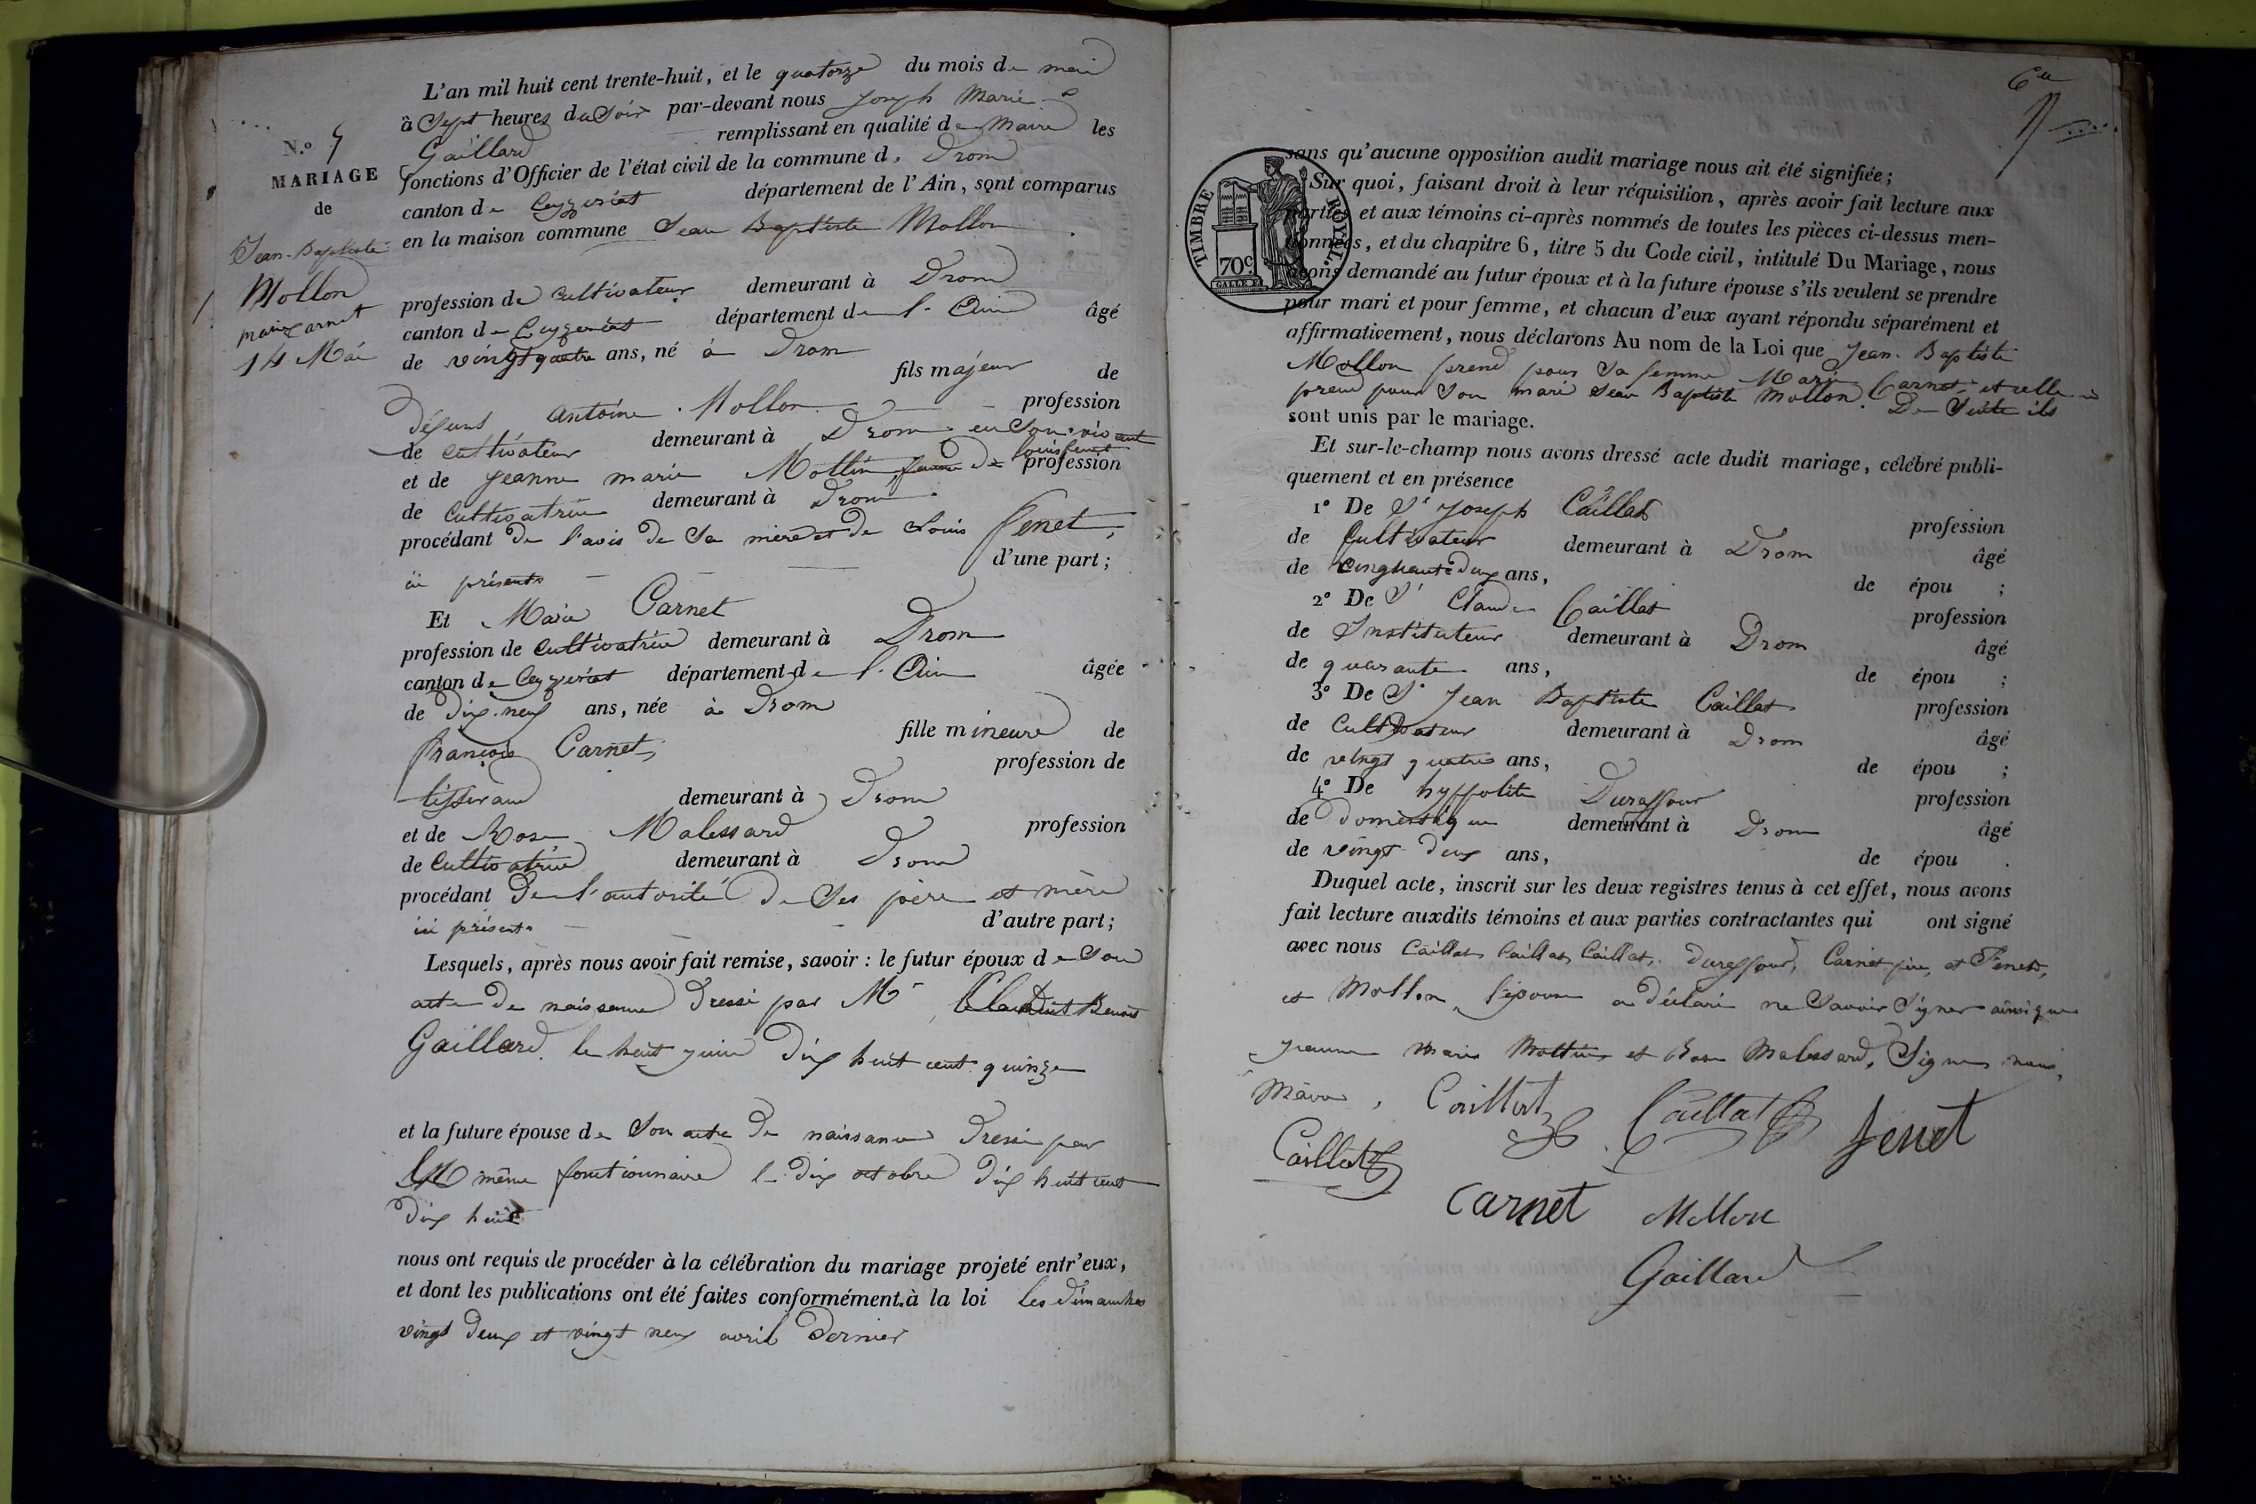 L'an mil huit cent trente-huit, et le quatorze du mois de mai
à Sept heures du Soir par-devant nous Joseph Marie
Gaillard remplissant en qualité de Maire les
fonctions d'Officier de l'état civil de la commune d. Drom
canton de Ceyzeriat département de l'Ain, sont comparus
en la maison commune Jean Baptiste Mollon
profession de Cultivateur demeurant à Drom
canton de Ceyzeriat département de l'Ain âgé
de vingt quatre ans, né à Drom
fils majeur de
défunt Antoine Mollon profession
de cultivateur demeurant à Drom en Son vivant
et de Jeanne marie Mottin femme de Louis fenet profession
de Cultivatrice demeurant à Drom
procédant De l'avis de Sa mère et de Louis Fenet,
ici présents d'une part;
Et Marie Carnet
profession de Cultivatrice demeurant à Drom
canton de Ceyzeriat département de l'Ain âgée
de dix-neuf ans, née à Drom
fille mineure de
françois Carnet profession de
tisserand demeurant à Drom
et de Rose Malessard profession
de Cultivatrice demeurant à Drom
procédant De l'autorité De Ses père et mère
ici présents d'autre part;
Lesquels, après nous avoir fait remise, savoir : le futur époux de Son
acte de naissance Dressé par Mr Benoit
Gaillard le huit juin dix huit cent quinze
et la future épouse de Son acte de naissance Dressé par
le même fonctionnaire le dix octobre dix huit cent
dix huit
nous ont requis de procéder à la célébration du mariage projeté entr'eux,
et dont les publications ont été faites conformément à la loi Les dimanches
vingt deux et vingt neuf avril dernier
N.o 5
MARIAGE
de
Jean-Baptiste
Mollon
marie carnet
14 Mai
6e
TIMBRE ROYAL.
70c.
sans qu'aucune opposition audit mariage nous ait été signifiée;
Sur quoi, faisant droit à leur réquisition, après avoir fait lecture aux
parties et aux témoins ci-après nommés de toutes les pièces ci-dessus men-
tionnées, et du chapitre 6, titre 5 du Code civil, intitulé Du Mariage, nous
avons demandé au futur époux et à la future épouse s'ils veulent se prendre
pour mari et pour femme, et chacun d'eux ayant répondu séparément et
affirmativement, nous déclarons Au nom de la Loi que Jean-Baptiste
Mollon prend pour Sa femme Marie Carnet et celle-ci
prend pour Son mari Jean Baptiste Mollon. De Suite ils
sont unis par le mariage.
Et sur-le-champ nous avons dressé acte dudit mariage, célébré publi-
quement et en présence
1o De Sr Joseph Caillat profession
de Cultivateur demeurant à Drom âgé
de cinquante deux ans, de épou ;
2o De Sr Claude Caillat profession
de Instituteur demeurant à Drom âgé
de quarante ans, de épou ;
3o De Sr Jean Baptiste Caillat profession
de Cultivateur demeurant à Drom âgé
de vingt quatre ans, de épou ;
4o De hyppolite Duraffour profession
de Domestique demeurant à Drom âgé
de vingt deux ans, de épou .
Duquel acte, inscrit sur les deux registres tenus à cet effet, nous avons
fait lecture auxdits témoins et aux parties contractantes qui ont signé
avec nous Caillat Caillat Caillat, Duraffour, Carnet père, et Fenet,
et Mollon, l'épouse a déclaré ne Savoir Signer ainsi que
Jeanne Marie Mottin et Rose Malessard, Signé nous,
Maire, Caillat Caillat fenet
Caillat
Carnet Mollon
Gaillard